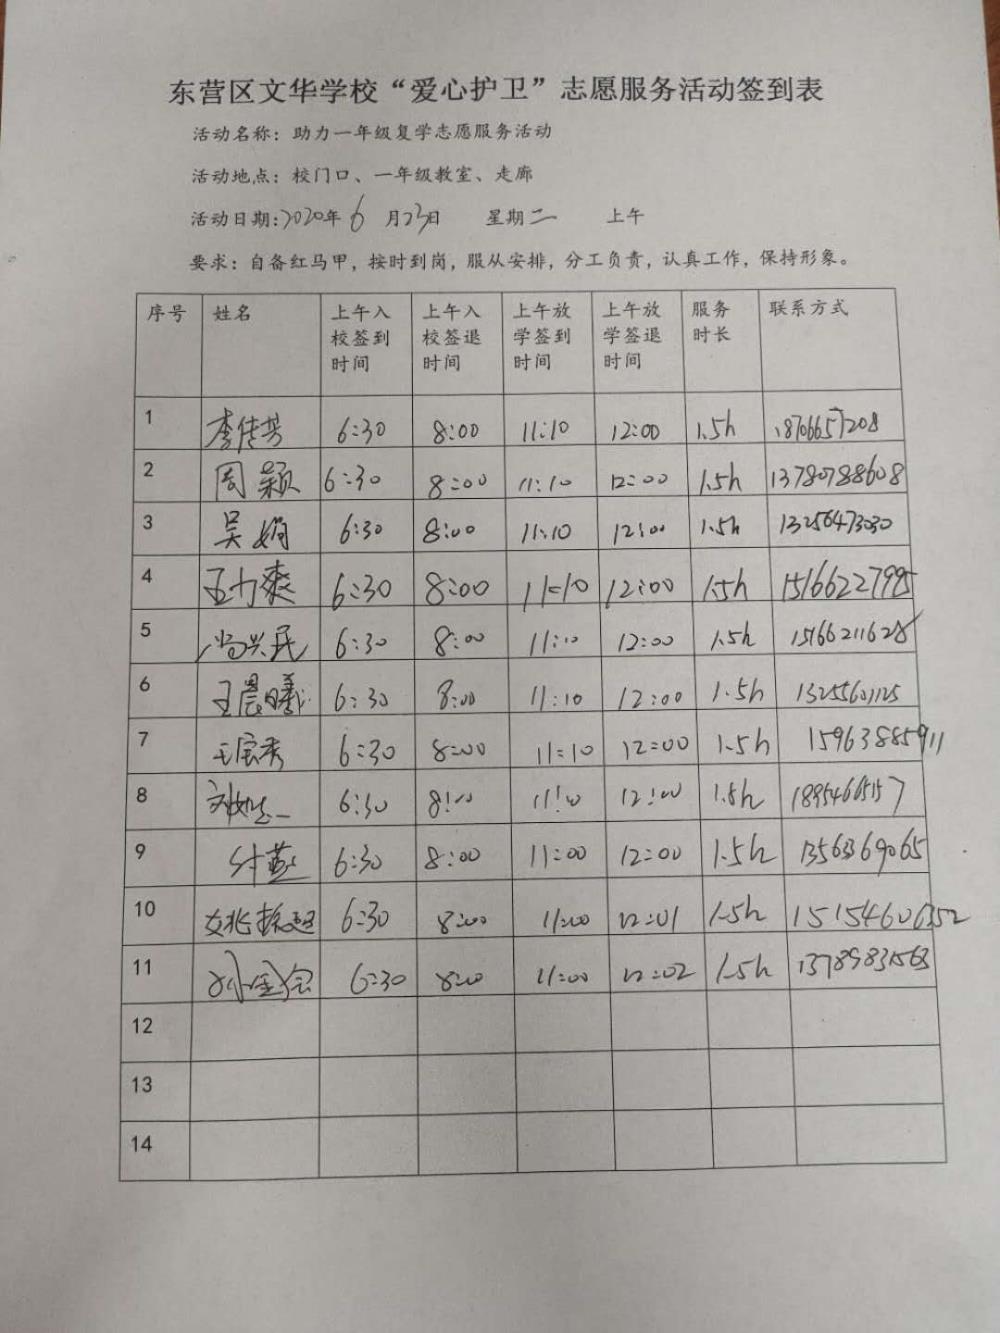 东营区文华学校“爱心护卫”志愿服务活动签到表
活动名称：助力一年级复学志愿服务活动
活动地点：校门口、一年级教室、走廊
活动日期：2020年6月23日 星期二 上午
要求：自备红马甲，按时到岗，服从安排，分工负责，认真工作，保持形象。
序号 姓名 上午入校签到时间 上午入校签退时间 上午放学签到时间 上午放学签退时间 服务时长 联系方式
1 李传芳 6:30 8:00 11:10 12:00 1.5h 18706657208
2 周颖 6:30 8:00 11:10 12:00 1.5h 13780788608
3 吴娟 6:30 8:00 11:10 12:00 1.5h 13256473030
4 王力爽 6:30 8:00 11:10 12:00 1.5h 15166227995
5 尚兴民 6:30 8:00 11:10 12:00 1.5h 15166211628
6 王晨曦 6:30 8:00 11:10 12:00 1.5h 13255601125
7 王宝秀 6:30 8:00 11:10 12:00 1.5h 15963885911
8 6:30 8:00 11:10 12:00 1.5h 18954665157
9 付燕 6:30 8:00 11:00 12:00 1.5h 13563369065
10 6:30 8:00 11:00 12:01 1.5h 15154606352
11 孙金会 6:30 8:00 11:00 12:02 1.5h 13789831563
12
13
14